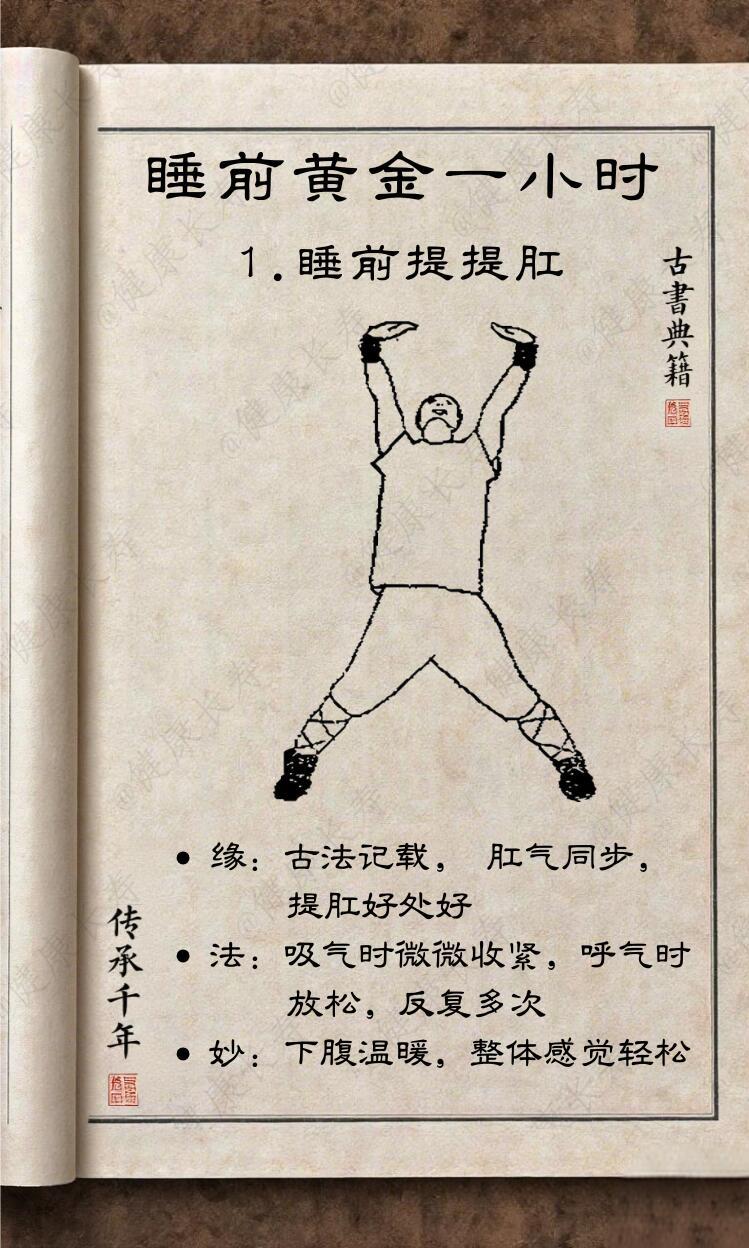 睡前黄金一小时
1.睡前提提肛
古書典籍
• 缘：古法记载， 肛气同步，
提肛好处好
• 法：吸气时微微收紧，呼气时
放松，反复多次
• 妙：下腹温暖，整体感觉轻松
传承千年
@健康长寿